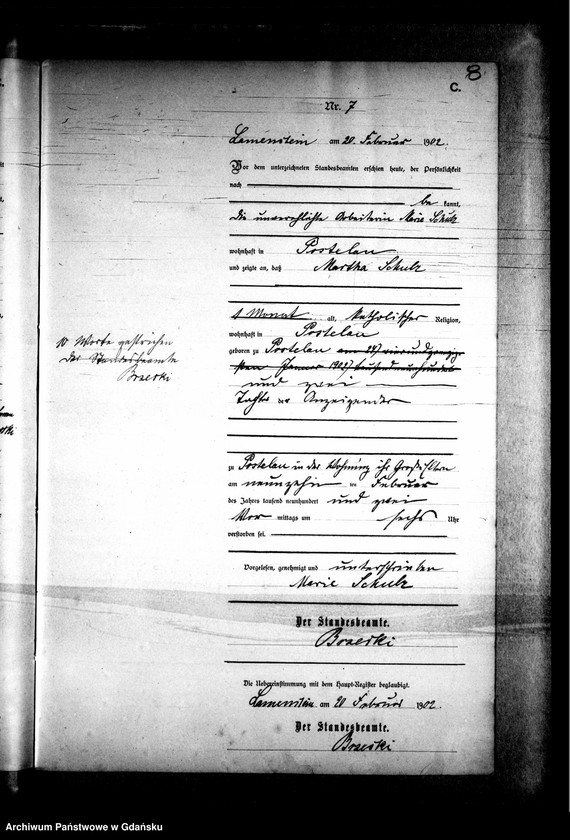 8
C.
Nr. 7
Lamenstein am 20. Februar 1902.
Vor dem unterzeichneten Standesbeamten erschien heute, der Persönlichkeit
nach
be kannt,
die unverehlichte Arbeiterin Marie Schulz
wohnhaft in Postelau
und zeigte an, daß Martha Schulz
1 Monat alt, katholischer Religion,
wohnhaft in Postelau
geboren zu Postelau am 24/ vierundzwanzig
sten Januar 1902/ tausendneunhundert
und zwei
Tochter der Anzeigenden
10 Worte gestrichen
Der Standesbeamte
Braeski
zu Postelau in der Wohnung ihr Großeltern
am neunzehn ten Februar
des Jahres tausend neunhundert und zwei
Vor mittags um sechs Uhr
verstorben sei.
Vorgelesen, genehmigt und unterschrieben
Marie Schulz
Der Standesbeamte.
Braeski
Die Uebereinstimmung mit dem Haupt-Register beglaubigt.
Lamenstein am 20 Februar 1902.
Der Standesbeamte.
Braeski
Archiwum Państwowe w Gdańsku